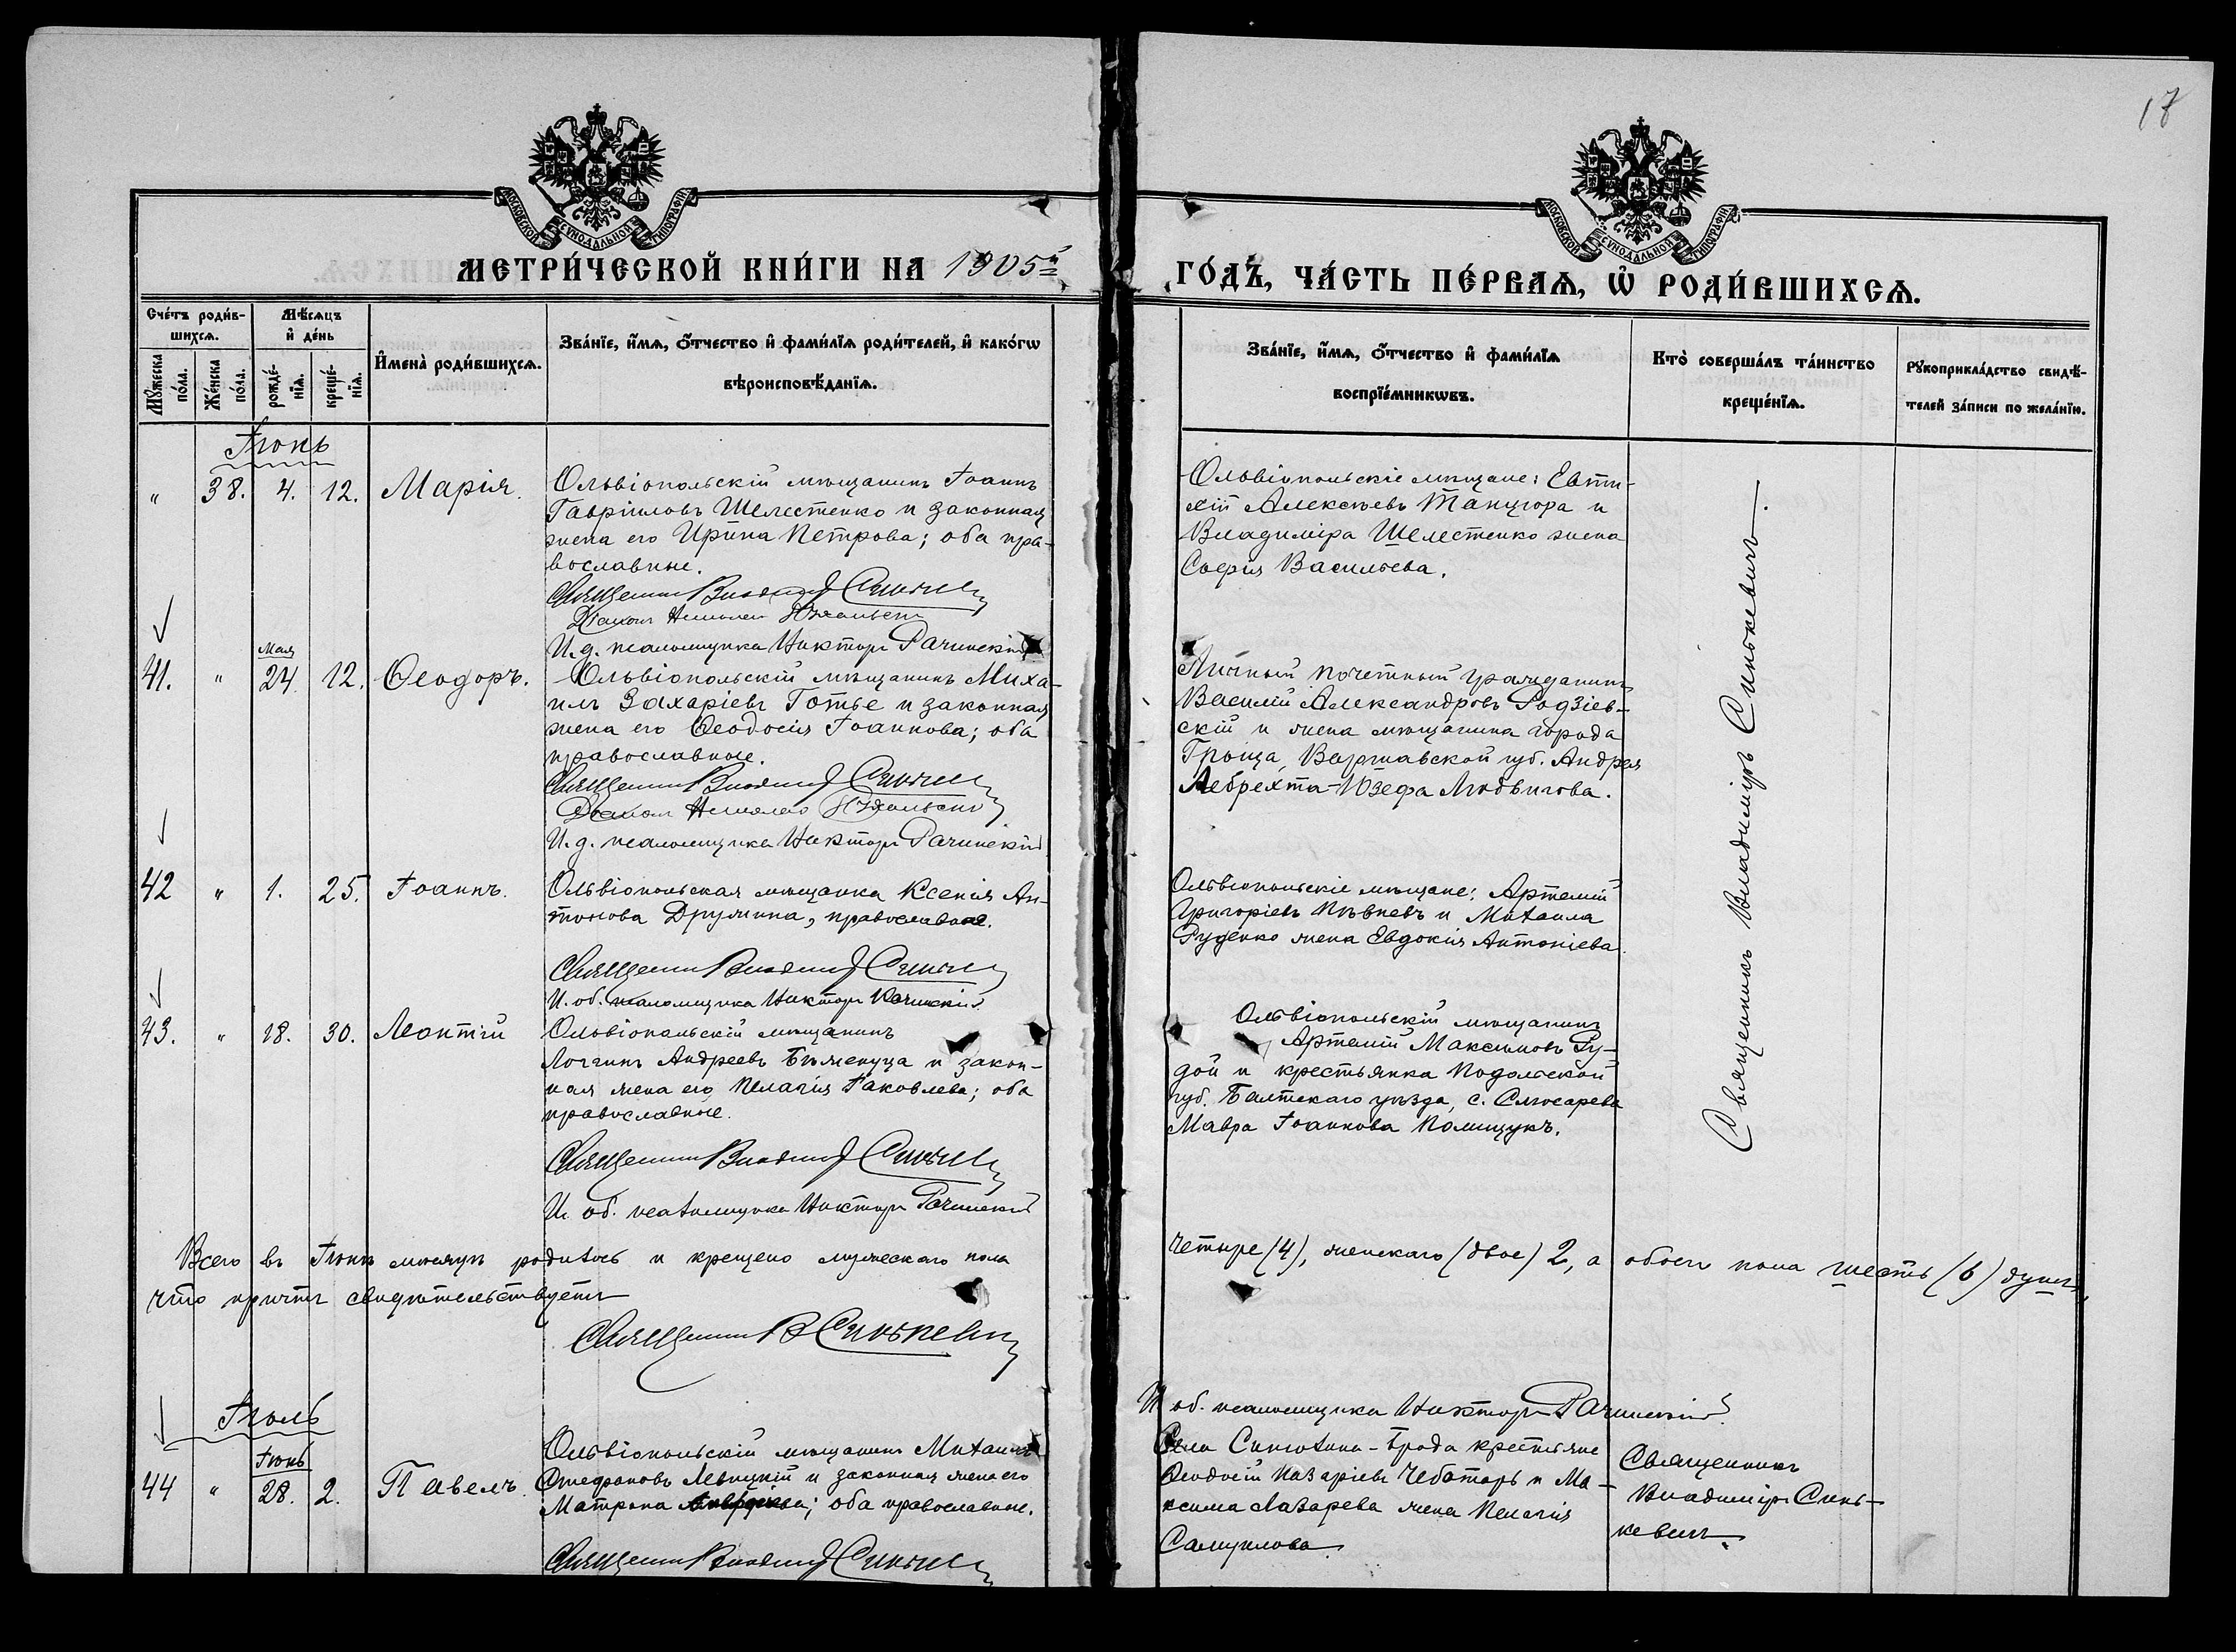 17
МОСКОВСКОЙ СѴНОДАЛЬНОЙ ТИПОГРАФІИ
МОСКОВСКОЙ СѴНОДАЛЬНОЙ ТИПОГРАФІИ
МЕТРИ́ЧЕСКОЙ КНИ́ГИ НА 1905й
ГО́ДЪ, ЧА́СТЬ ПЕ́РВАѦ, Ѡ҆ РОДИ́ВШИХСѦ.
Сче́тъ роди́в-
шихсѧ.
Мꙋ́жеска по́ла.
Же́нска по́ла.
Мѣ́сѧцъ
и҆ де́нь
рожде́-нїѧ.
креще́-нїѧ.
И҆мена̀ роди́вшихсѧ.
Зва́нїе, и҆́мѧ, ѻ҆́тчество и҆ фами́лїѧ роди́телей, и҆ како́гѡ
вѣроисповѣ́данїѧ.
Зва́нїе, и҆́мѧ, ѻ҆́тчество и҆ фами́лїѧ
воспрїе́мникѡвъ.
Кто̀ соверша́лъ та́инство
креще́нїѧ.
Рꙋкоприкла́дство свидѣ́-
телей за́писи по жела́нїю.
Іюнь
" 38. 4. 12. Марія.
Ольвіопольскій мѣщанинъ Іоаннъ
Гавріиловъ Шелестенко и законная
жена его Ирина Петрова; оба пра-
вославные.
Священникъ Владимір Синькев
Діаконъ Николай
И. д. псаломщика Виктор Рачинскій
Ольвіопольскіе мѣщане: Евти-
хій Алексѣевъ Танцюра и
Владиміра Шелестенко жена
Софія Васильева.
41. " Мая 24. 12. Ѳеодоръ.
Ольвіопольскій мѣщанинъ Миха-
илъ Захаріевъ Готье и законная
жена его Ѳеодосія Іоаннова; оба
православные.
Священникъ Владимір Синькев
Діаконъ Николай
И. д. псаломщика Виктор Рачинскій
Личный почетный гражданинъ
Василій Александровъ Родзіев-
скій и жена мѣщанина города
Гройца, Варшавской губ. Андрея
Лебрехта-Юзефа Людвигова.
42 " 1. 25. Іоаннъ.
Ольвіопольская мѣщанка Ксенія Ан-
тонова Дружина, православная.
Священникъ Владимір Синькев
И. об. псаломщика Виктор Рачинскій
Ольвіопольскіе мѣщане: Артемій
Григоріевъ Пѣвневъ и Михаила
Руденко жена Евдокія Антоніева.
43. " 18. 30. Леонтій
Ольвіопольскій мѣщанинъ
Логгинъ Андреевъ Бѣженуца и закон-
ная жена его Пелагія Іаковлева; оба
православные.
Священникъ Владимір Синькев
И. об. псаломщика Виктор Рачинскій
Ольвіопольскій мѣщанинъ
Артемій Максимовъ Ру-
дой и крестьянка Подольской
губ. Балтскаго уѣзда, с. Слюсарева
Мавра Іоаннова Полищукъ.
Священникъ Владиміръ Синькевичъ.
Всего въ Іюнѣ мѣсяцѣ родилось и крещено мужескаго пола четыре (4), женскаго (двое) 2, а обоего пола шесть (6) душъ,
что причтъ свидѣтельствуетъ
Священникъ В Синькевич
И об. псаломщика Виктор Рачинскій
Іюль
44 " Іюнь 28. 2. Павелъ.
Ольвіопольскій мѣщанинъ Михаилъ
Стефановъ Левицкій и законная жена его
Матрона; оба православные.
Священникъ Владимір Синькев
Села Синюхина-Брода крестьяне
Ѳеодосій Назаріевъ Чеботарь и Ма-
ксима Лазарева жена Пелагія
Самуилова.
Священникъ
Владиміръ Синь-
кевичъ.